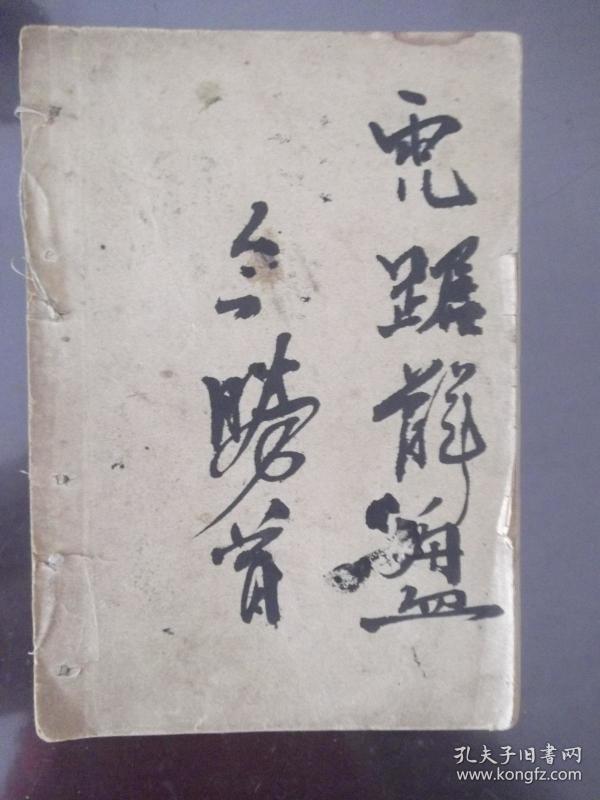 虎踞龍盤
今勝昔
孔夫子旧書网
www.kongfz.com